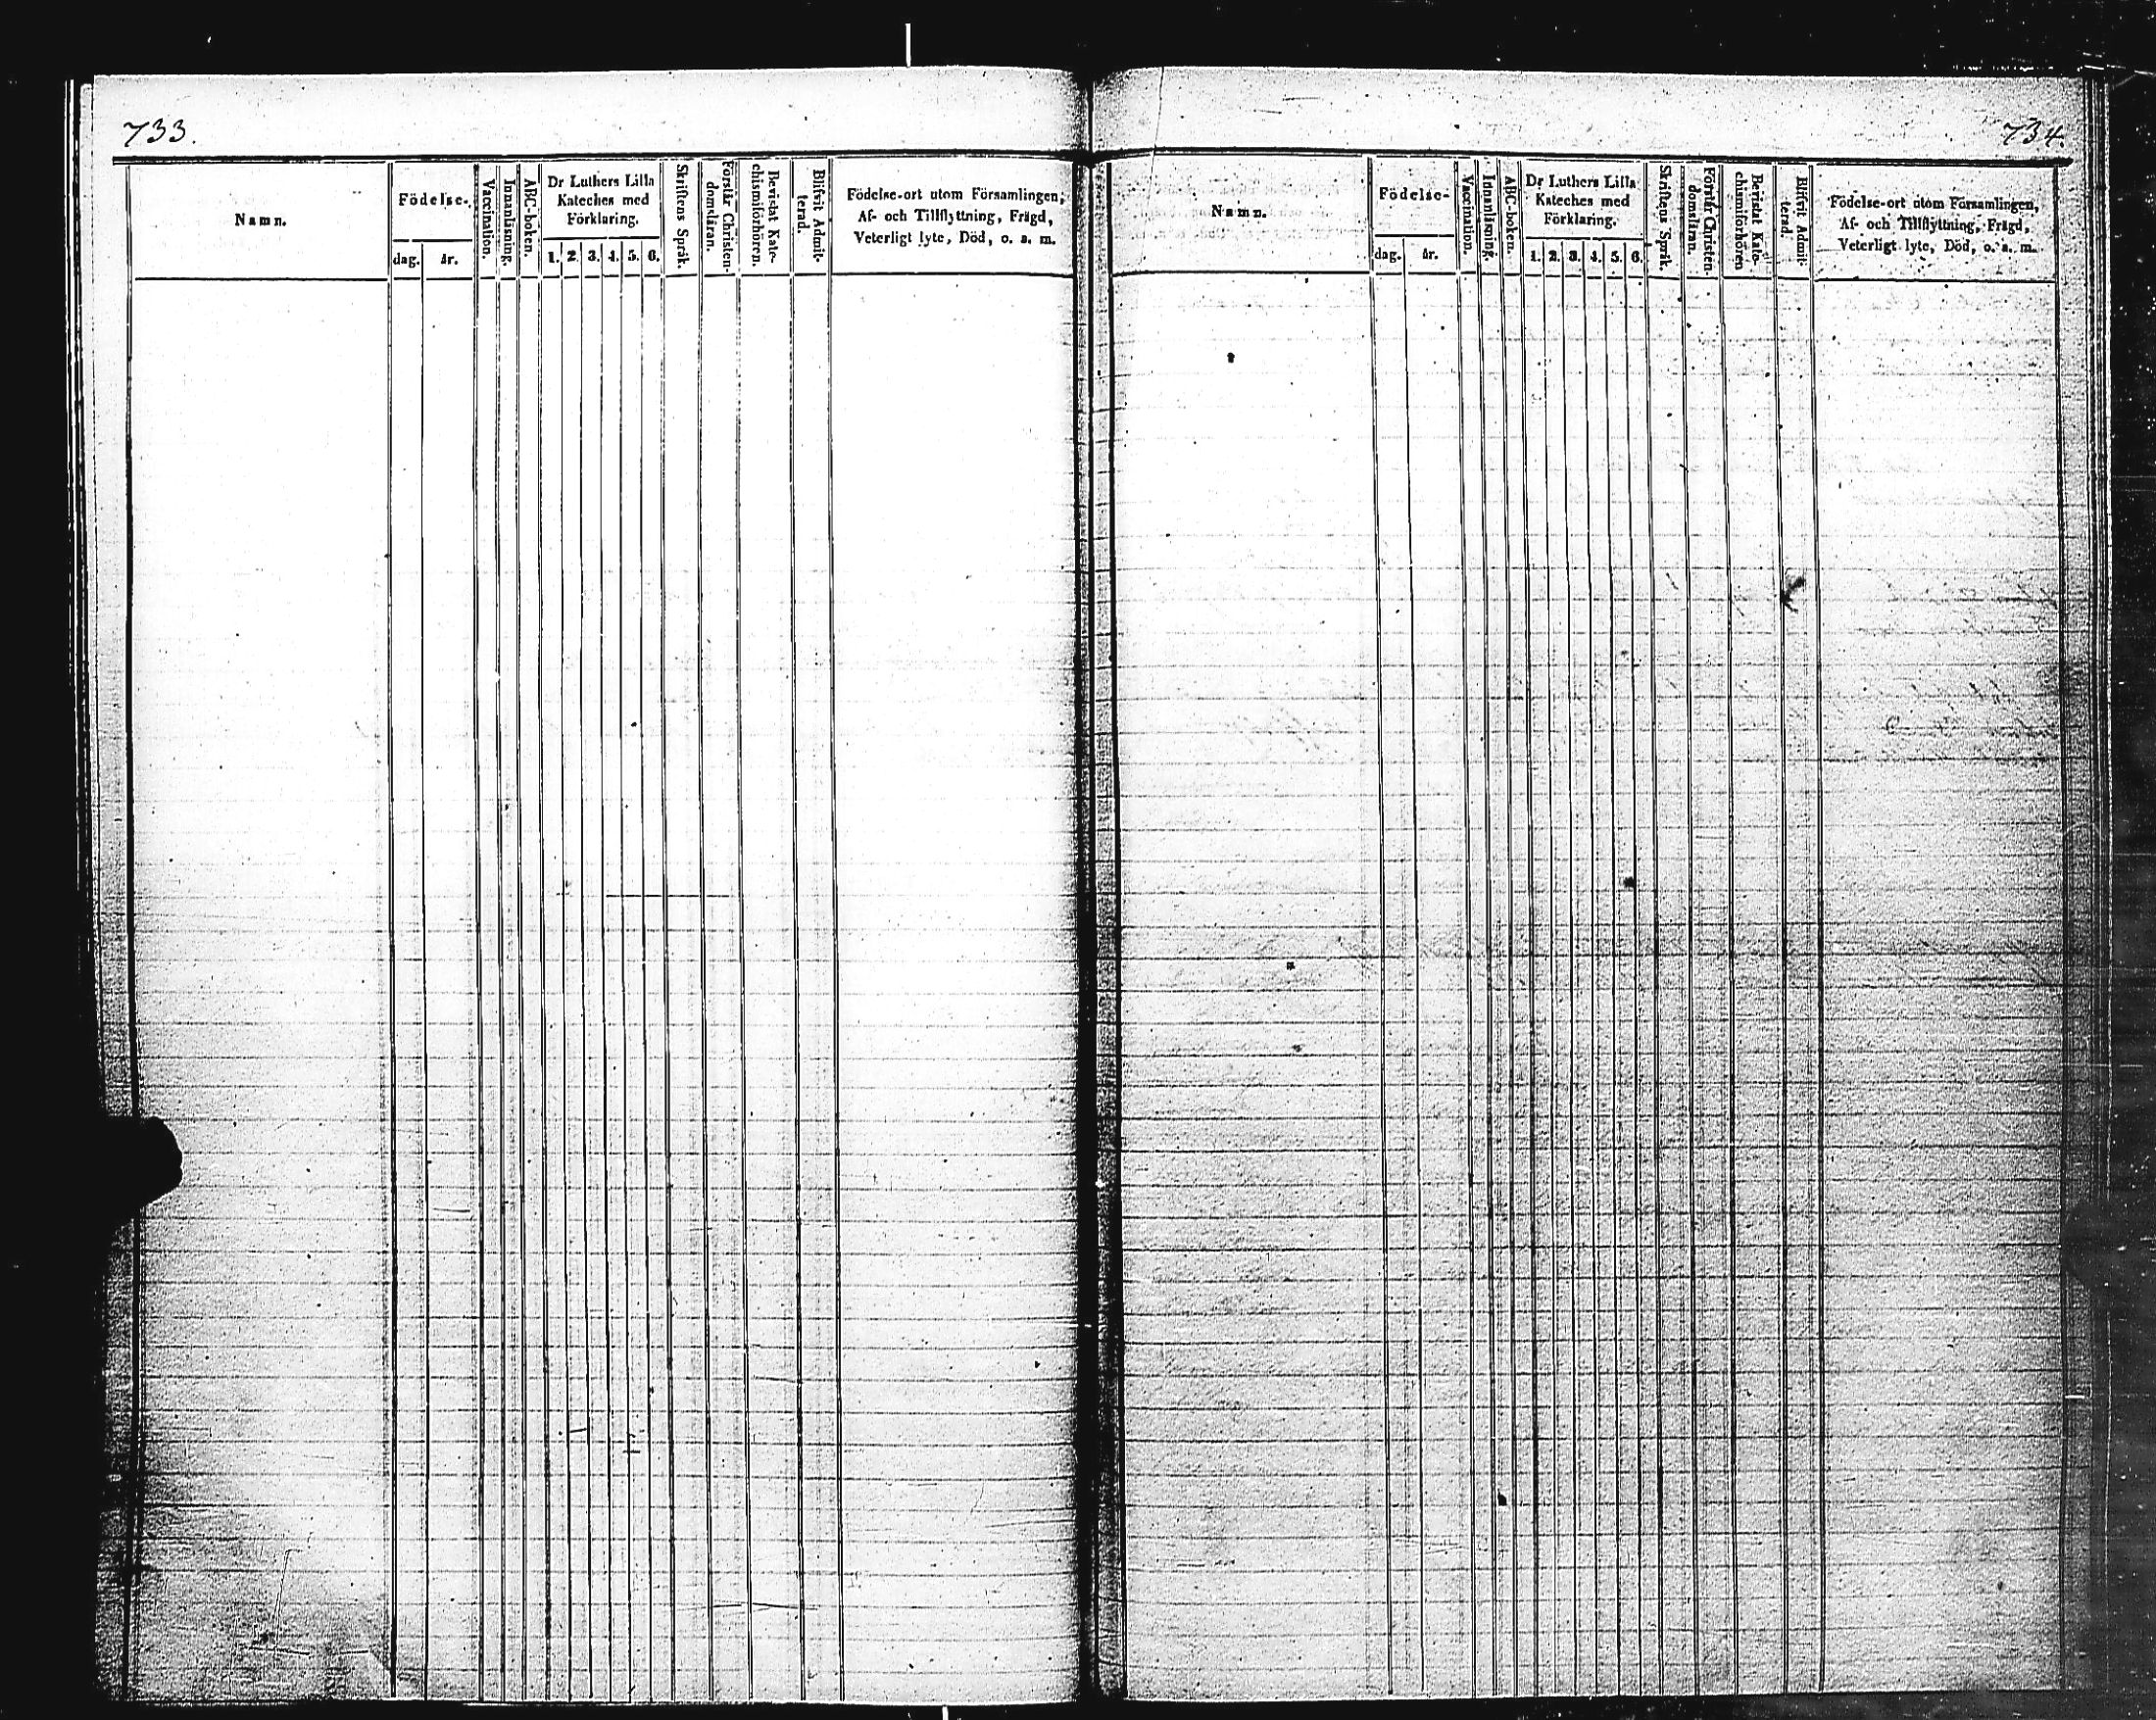 733.
Namn.
Födelse-
dag.
år.
Vaccination.
Innanläsning.
ABC-boken.
Dr Luthers Lilla
Kateches med
Förklaring.
1. 2. 3. 4. 5. 6.
Skriftens Språk.
Förstår Christen-
domsläran.
Bevistat Kate-
chismiförhören.
Blifvit Admit-
terad.
Födelse-ort utom Församlingen,
Af- och Tillflyttning, Frägd,
Veterligt lyte, Död, o. s. m.
734.
Namn.
Födelse-
dag.
år.
Vaccination.
Innanläsning.
ABC-boken.
Dr Luthers Lilla
Kateches med
Förklaring.
1. 2. 3. 4. 5. 6.
Skriftens Språk.
Förstår Christen-
domsläran.
Bevistat Kate-
chismiförhören
Blifvit Admit-
terad.
Födelse-ort utom Församlingen,
Af- och Tillflyttning, Frägd,
Veterligt lyte, Död, o. s. m.